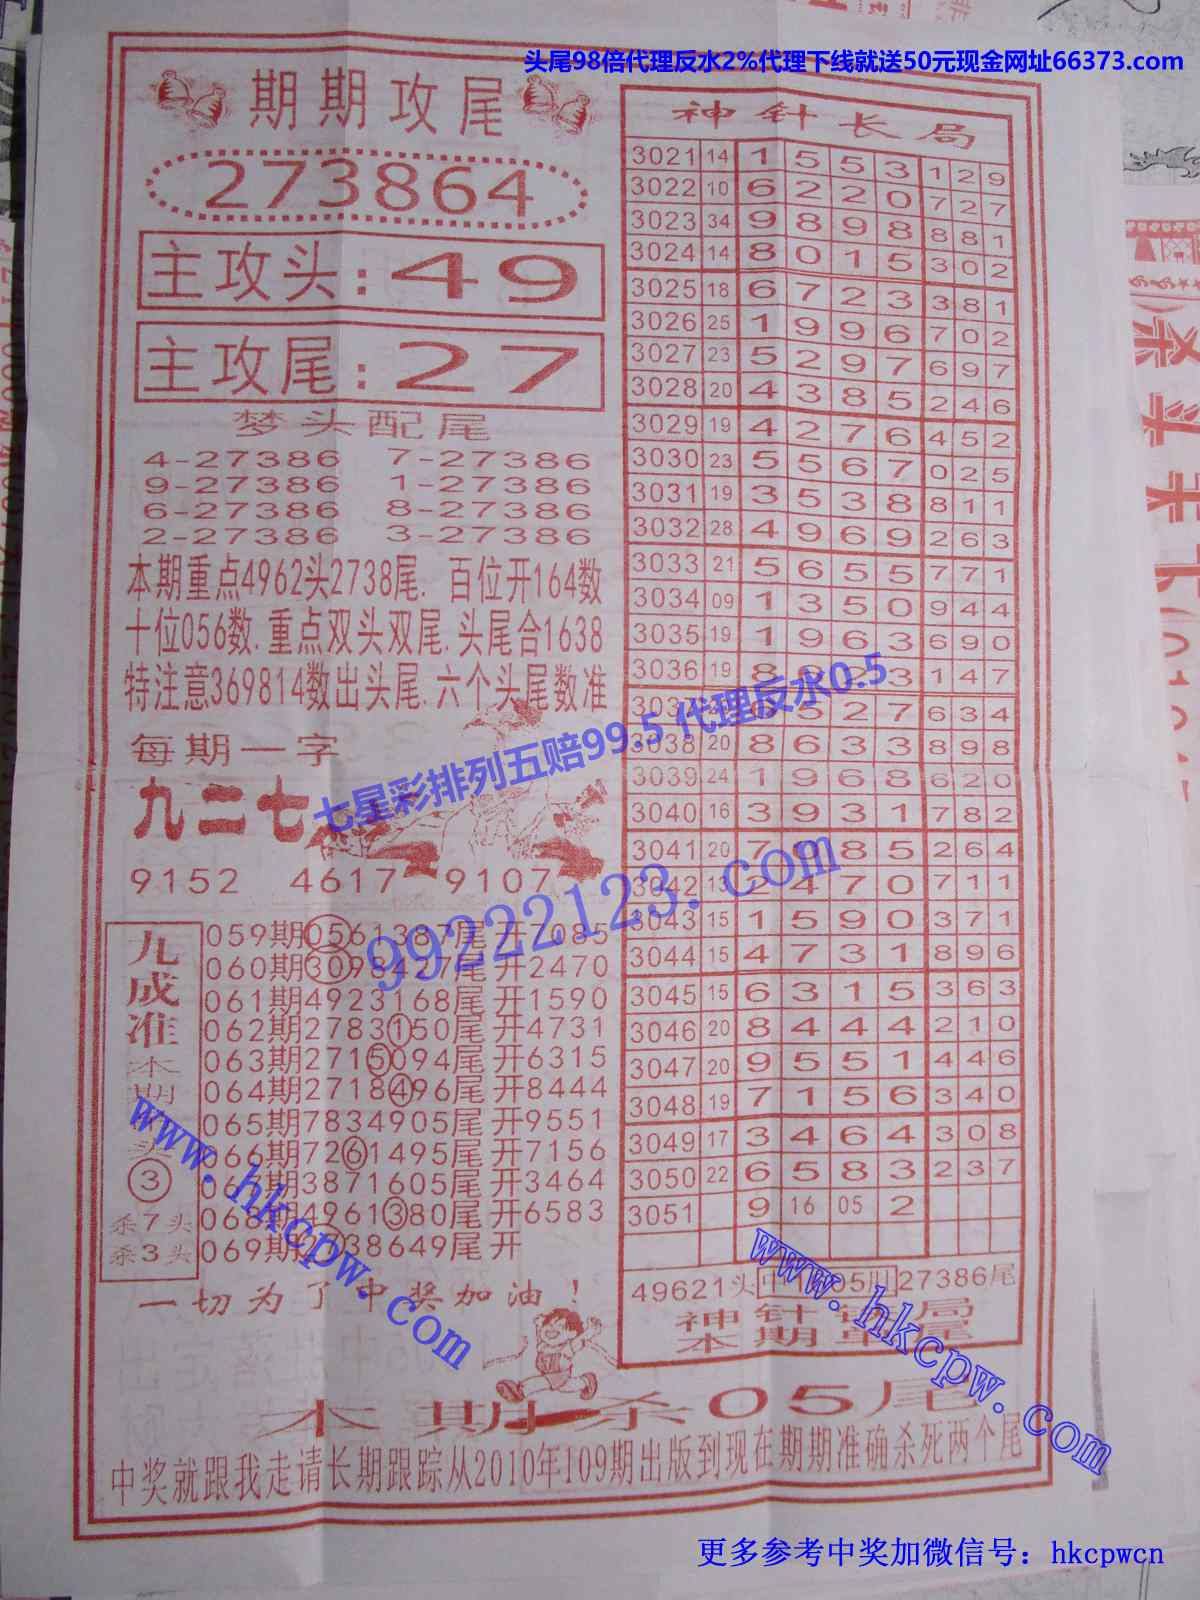 头尾98倍代理反水2%代理下线就送50元现金网址66373.com
期期攻尾
273864
主攻头:49
主攻尾:27
梦头配尾
4-27386 7-27386
9-27386 1-27386
6-27386 8-27386
2-27386 3-27386
本期重点4962头2738尾. 百位开164数
十位056数.重点双头双尾.头尾合1638
特注意369814数出头尾.六个头尾数准
每期一字
九二七
9152 4617 9107
九成准
本期
头
③
杀7头
杀3头
059期0561387尾开7085
060期3098427尾开2470
061期4923168尾开1590
062期2783①50尾开4731
063期271⑤094尾开6315
064期2718④96尾开8444
065期7834905尾开9551
066期72⑥1495尾开7156
067期3871605尾开3464
068期4961③80尾开6583
069期2738649尾开
一切为了中奖加油!
神针长局
3021 14 1 5 5 3 1 2 9
3022 10 6 2 2 0 7 2 7
3023 34 9 8 9 8 8 8 1
3024 14 8 0 1 5 3 0 2
3025 18 6 7 2 3 3 8 1
3026 25 1 9 9 6 7 0 2
3027 23 5 2 9 7 6 9 7
3028 20 4 3 8 5 2 4 6
3029 19 4 2 7 6 4 5 2
3030 23 5 5 6 7 0 2 5
3031 19 3 5 3 8 8 1 1
3032 28 4 9 6 9 2 6 3
3033 21 5 6 5 5 7 7 1
3034 09 1 3 5 0 9 4 4
3035 19 1 9 6 3 6 9 0
3036 19 8 2 3 1 4 7
303 6 5 2 7 6 3 4
3038 20 8 6 3 3 8 9 8
3039 24 1 9 6 8 6 2 0
3040 16 3 9 3 1 7 8 2
3041 20 7 0 8 5 2 6 4
3042 13 2 4 7 0 7 1 1
3043 15 1 5 9 0 3 7 1
3044 15 4 7 3 1 8 9 6
3045 15 6 3 1 5 3 6 3
3046 20 8 4 4 4 2 1 0
3047 20 9 5 5 1 4 4 6
3048 19 7 1 5 6 3 4 0
3049 17 3 4 6 4 3 0 8
3050 22 6 5 8 3 2 3 7
3051 9 16 05 2
49621头 中 05 27386尾
神针 局
本期 尾
本期杀05尾
中奖就跟我走请长期跟踪从2010年109期出版到现在期期准确杀死两个尾
七星彩排列五赔99.5 代理反水0.5
99222123.com
www.hkcpw.com
www.hkcpw.com
更多参考中奖加微信号：hkcpwcn